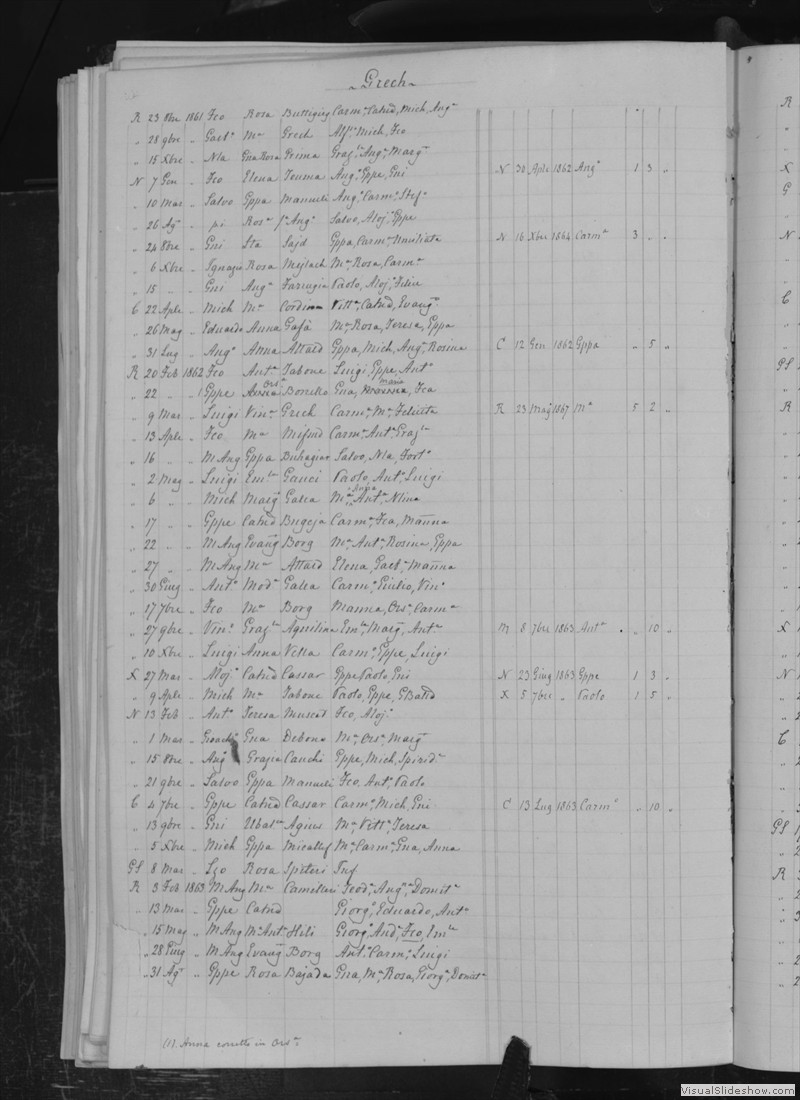 Grech
R 23 8bre 1861 Fco Rosa Buttigieg Carmo, Catnd, Mich, Ango
„ 28 9bre „ Gaeto Ma Grech Alfo, Mich, Fco
„ 15 Xbre „ Nla Gna Rosa Prima Grazla, Ango, Marga
N 7 Gen „ Fco Elena Teuma Ango, Gppe, Gni N 30 Aple 1862 Ango 1 3 „
„ 10 Mar „ Salvo Gppa Manueli Ango, Carmo, Stefo
„ 26 Ago „ pi Rosa Ango Salvo, Alojo, Gppe
„ 24 8bre „ Gni Sta Sajd Gppa, Carma, N 16 Xbre 1864 Carma 3 „ „
„ 6 Xbre „ Ignazio Rosa Mejlach Ma, Rosa, Carma
„ 15 „ „ Gni Anga Farrugia Paolo, Aloja, Felice
C 22 Aple „ Mich Ma Cordina Vitta, Catnd, Evango
„ 26 Mag „ Eduardo Anna Gafà Ma, Rosa, Teresa, Gppa
„ 31 Lug „ Ango Anna Attard Gppa, Mich, Anga, Rosina C 12 Gen 1862 Gppa „ 5 „
R 20 Feb 1862 Fco Anta Tabone Luigi, Gppe, Anto
„ 22 „ „ Gppe Orsa Borello Gna, maria, Fca
„ 9 Mar „ Luigi Vina Grech Carmo, Ma, Felicita R 23 Mag 1867 Ma 5 2 „
„ 13 Aple „ Fco Ma Mifsud Carma, Anta, Grazla
„ 16 „ „ M Ang Gppa Buhagiar Salvo, Nla, Forto
„ 2 Mag „ Luigi Emla Gauci Paolo, Anto, Luigi
„ 6 „ „ Mich Marga Galea Ma Anna, Anta, Nlina
„ 17 „ „ Gppe Catnd Bugeja Carmo, Fca, Manna
„ 22 „ „ M Ang Evanga Borg Ma, Anta, Rosina, Gppa
„ 27 „ „ M Ang Ma Attard Elena, Gaeta, Manna
„ 30 Giug „ Anto Moda Galea Carmo, Giulio, Vino
„ 17 7bre „ Fco Ma Borg Manna, Orsa, Carma
„ 27 9bre „ Vino Grazla Aquilina Emla, Marga, Anta M 8 7bre 1863 Anta „ 10 „
„ 10 Xbre „ Luigi Anna Vella Carmo, Gppe, Luigi
X 27 Mar „ Alojo Catnd Cassar Gppe Paolo, Gni N 23 Giug 1863 Gppe 1 3 „
„ 9 Aple „ Mich Ma Tabone Paolo, Gppe, GBatta X 5 7bre „ Paolo 1 5 „
N 13 Feb „ Anto Teresa Muscat Fco, Alojo
„ 1 Mar „ Gioachino Gna Debono Ma, Orsa, Marga
„ 15 8bre „ Ango Grazia Cauchi Gppe, Mich, Spirido
„ 21 9bre „ Salvo Gppa Manueli Fco, Anto, Paolo
C 4 7bre „ Gppe Catnd Cassar Carmo, Mich, Gni C 13 Lug 1863 Carmo „ 10 „
„ 13 9bre „ Gni Ubalna Agius Ma, Vitta, Teresa
„ 5 Xbre „ Mich Gppa Micallef Ma, Carma, Gna, Anna
GS 8 Mar „ Lzo Rosa Spiteri Inf
R 3 Feb 1863 M Ang Ma Camelleri Teodo, Anga, Domita
„ 13 Mar „ Gppe Catnd Giorgo, Eduardo, Anto
„ 15 Mag „ M Ang Ma Anta Heli Giorgo, Anda, Fco, Emla
„ 28 Giug „ M Ang Evanga Borg Anta, Carmo, Luigi
„ 31 Ago „ Gppe Rosa Bajada Gna, Ma, Rosa, Giorga, Domita
(1). Anna corretto in Orsa
VisualSlideshow.com